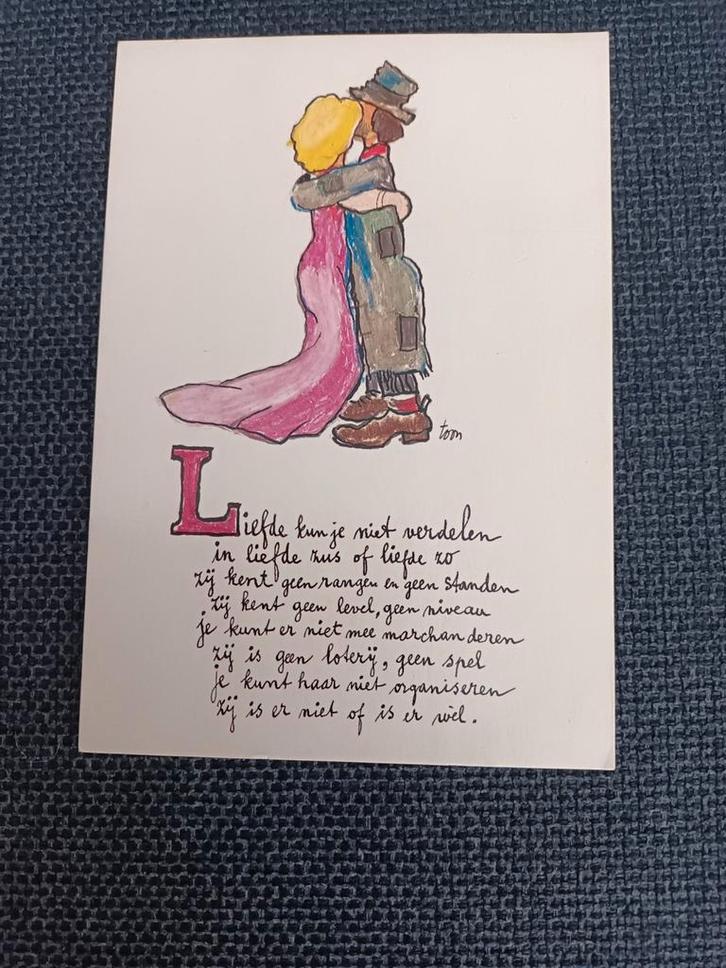 toon
Liefde kun je niet verdelen
in liefde zus of liefde zo
zij kent geen rangen en geen standen
zij kent geen level, geen niveau
je kunt er niet mee marchanderen
zij is geen loterij, geen spel
je kunt haar niet organiseren
zij is er niet of is er wèl.